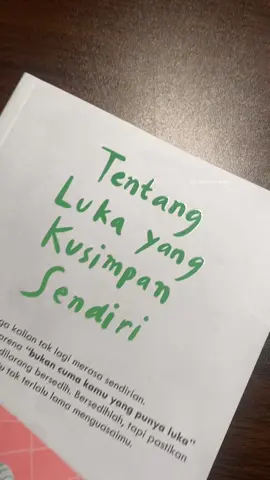 Tentang
Luka yang
Kusimpan
Sendiri
ga kalian tak lagi merasa sendirian.
arena "bukan cuma kamu yang punya luka"
dilarang bersedih. Bersedihlah, tapi pastikan
u tak terlalu lama menguasaimu.